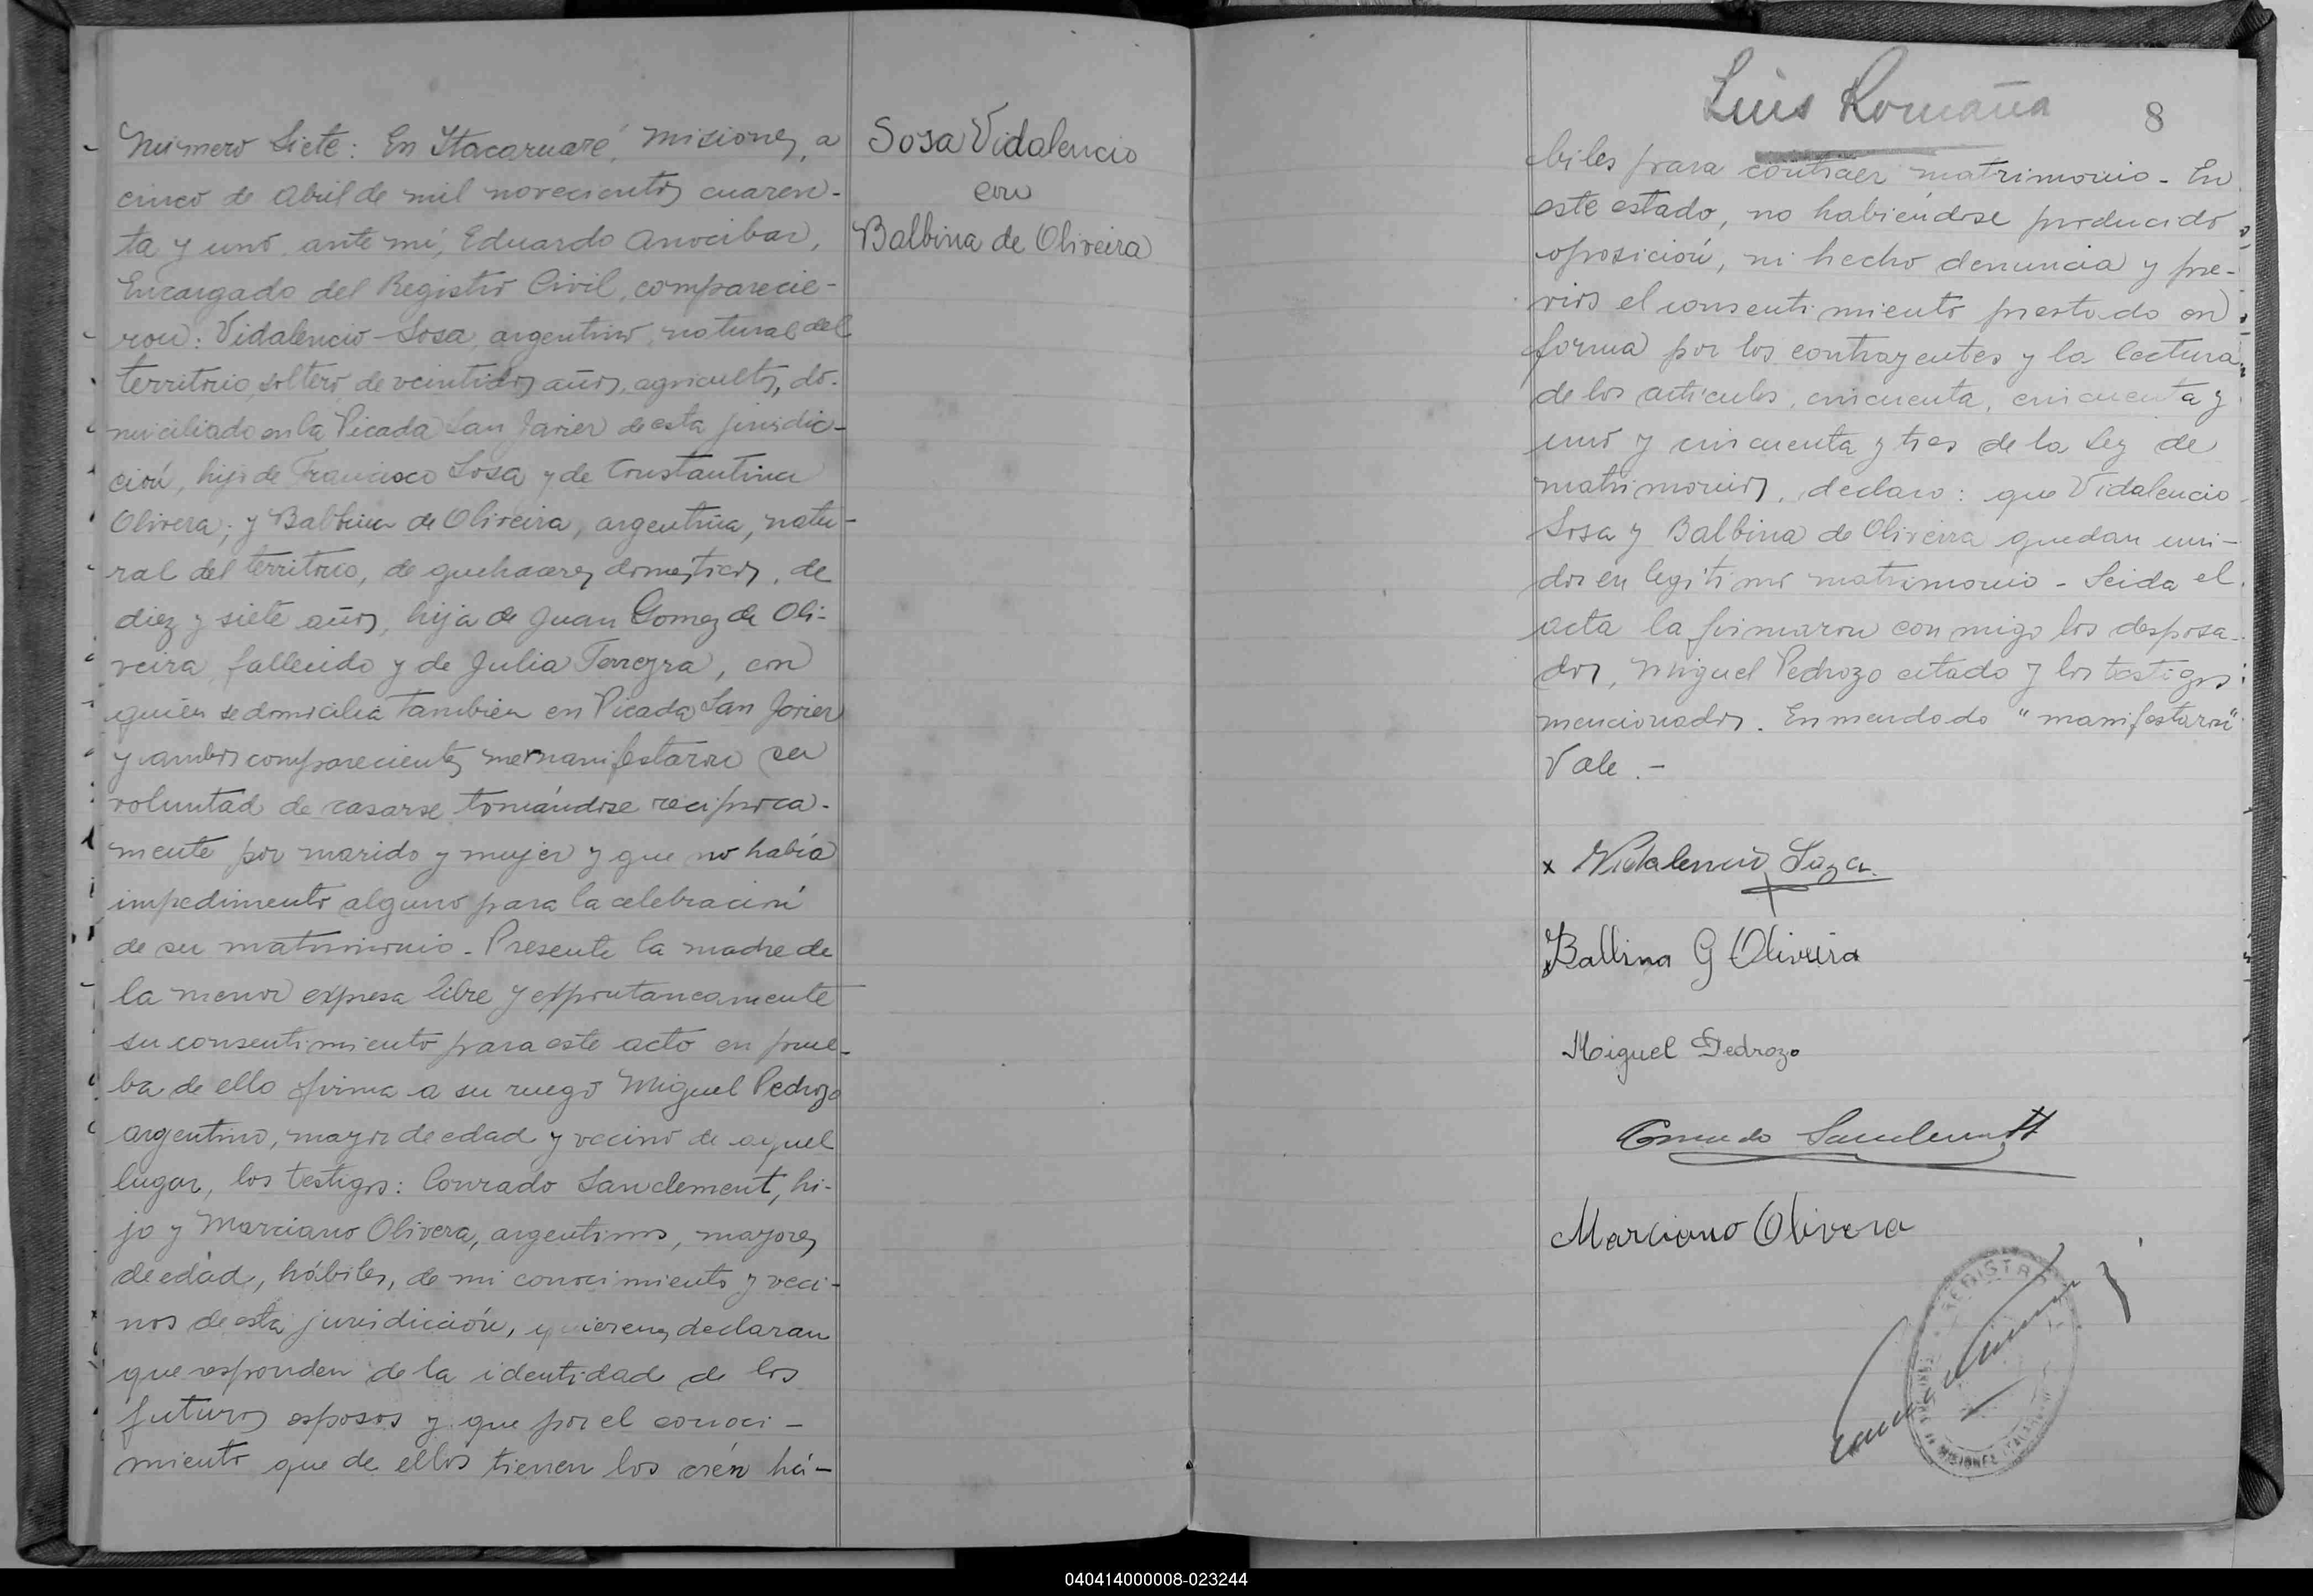 Número Siete: En Itacaruaré, Misiones, a
cinco de Abril de mil novecientos cuaren-
ta y uno, ante mí, Eduardo Anocibar,
Encargado del Registro Civil, comparecie-
ron: Vidalencio Sosa, argentino, natural del
territorio, soltero, de veintidos años, agricultor, do-
miciliado en la Picada San Javier de esta jurisdic-
ción, hijo de Francisco Sosa y de Constantina
Olivera; y Balbina de Oliveira, argentina, natu-
ral del territorio, de quehaceres domesticos, de
diez y siete años, hija de Juan Gomez de Oli-
veira, fallecido y de Julia Ferreyra, con
quién se domicilia también en Picada San Javier
y ambos comparecientes me manifestaron su
voluntad de casarse tomándose reciproca-
mente por marido y mujer y que no había
impedimento alguno para la celebración
de su matrimonio. Presente la madre de
la menor expresa libre y espontaneamente
su consentimiento para este acto en prue-
ba de ello firma a su ruego Miguel Pedrozo
argentino, mayor de edad y vecino de aquel
lugar, los testigos: Conrado Sanclement, hi-
jo y Marciano Olivera, argentinos, mayores
de edad, hábiles, de mi conocimiento y veci-
nos de esta jurisdicción, quienes declaran
que responden de la identidad de los
futuros esposos y que por el conoci-
miento que de ellos tienen los creén há-
Sosa Vidalencio
con
Balbina de Oliveira
Luis Romaña
8
biles para contraer matrimonio - En
este estado, no habiéndose producido
oposición, ni hecho denuncia y pre-
vios el consentimiento prestado en
forma por los contrayentes y la lectura
de los articulos, cincuenta, cincuenta y
uno y cincuenta y tres de la Ley de
matrimonios, declaro: que Vidalencio
Sosa y Balbina de Oliveira quedan uni-
dos en legítimo matrimonio - Leida el
acta la firmaron conmigo los desposa-
dos, Miguel Pedrozo citado y los testigos
mencionados. Enmendado "manifestaron"
Vale.-
x Vidalencio Soza
x Balbina G Oliveira
Miguel Pedrozo
Conrado Sanclement H
Marciano Olivera
REGISTRO
MISIONES
040414000008-023244